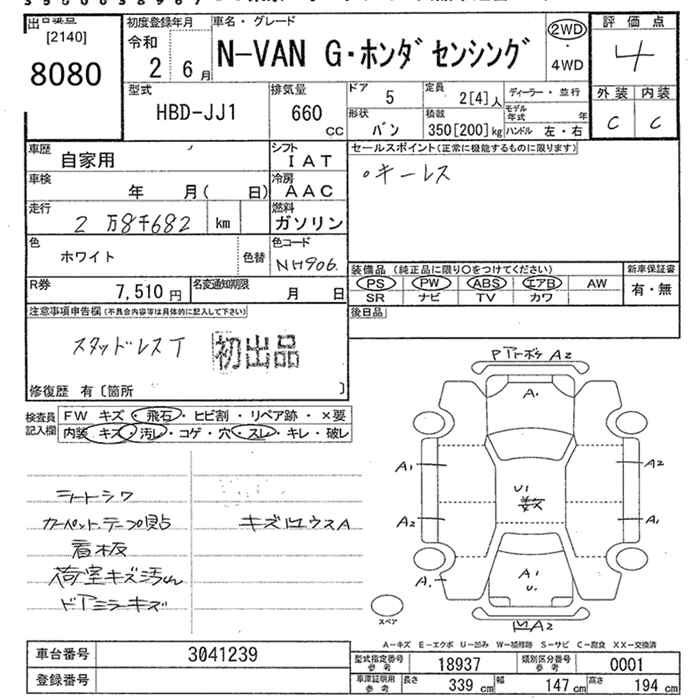 出品番号
[2140]
8080
初度登録年月
令和
2 6月
車名・グレード
N-VAN G・ホンダセンシング
2WD
4WD
評価点
4
外装 内装
C C
型式
HBD-JJ1
排気量
660
CC
ドア
5
定員
2[4]人
形状
バン
積載
350[200]kg
ディーラー・並行
モデル年式 年
ハンドル 左・右
車歴
自家用
シフト
IAT
車検
年 月( 日)
冷房
AAC
走行
2万8千682 km
燃料
ガソリン
色
ホワイト
色替
色コード
NH906
R券
7,510円
名変通知期限
月 日
セールスポイント(正常に機能するものに限ります)
○キーレス
装備品(純正品に限り○をつけてください)
PS PW ABS エアB AW
SR ナビ TV カワ
新車保証書
有・無
後日品
注意事項申告欄(不具合内容等は具体的に記入して下さい)
スタッドレスT
初出品
修復歴 有〔箇所 〕
検査員
記入欄
FW キズ・飛石・ヒビ割・リペア跡・×要
内装 キズ・汚レ・コゲ・穴・スレ・キレ・破レ
シートシワ
カーペット、テープ貼
看板
荷室キズ汚れ
ドアミラーキズ
A2
A1
A1
A2
A2
A1
U1
A1
A1
U1
A2
スペア
A-キズ E-エクボ U-凹み W-補修跡 S-サビ C-腐食 XX-交換済
車台番号
3041239
登録番号
型式指定番号
参考
18937
類別区分番号
参考
0001
車庫証明用
参考
長さ
339cm
幅
147cm
高さ
194cm